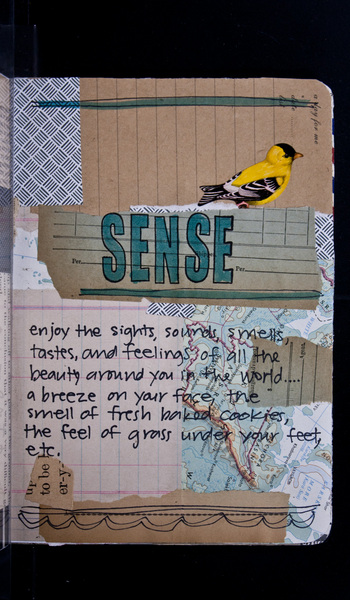 SENSE
Per
Per
enjoy the sights, sounds, smells,
tastes, and feelings of all the
beauty around you in the world....
a breeze on your face, the
smell of fresh baked cookies,
the feel of grass under your feet,
etc.
to be
er-y